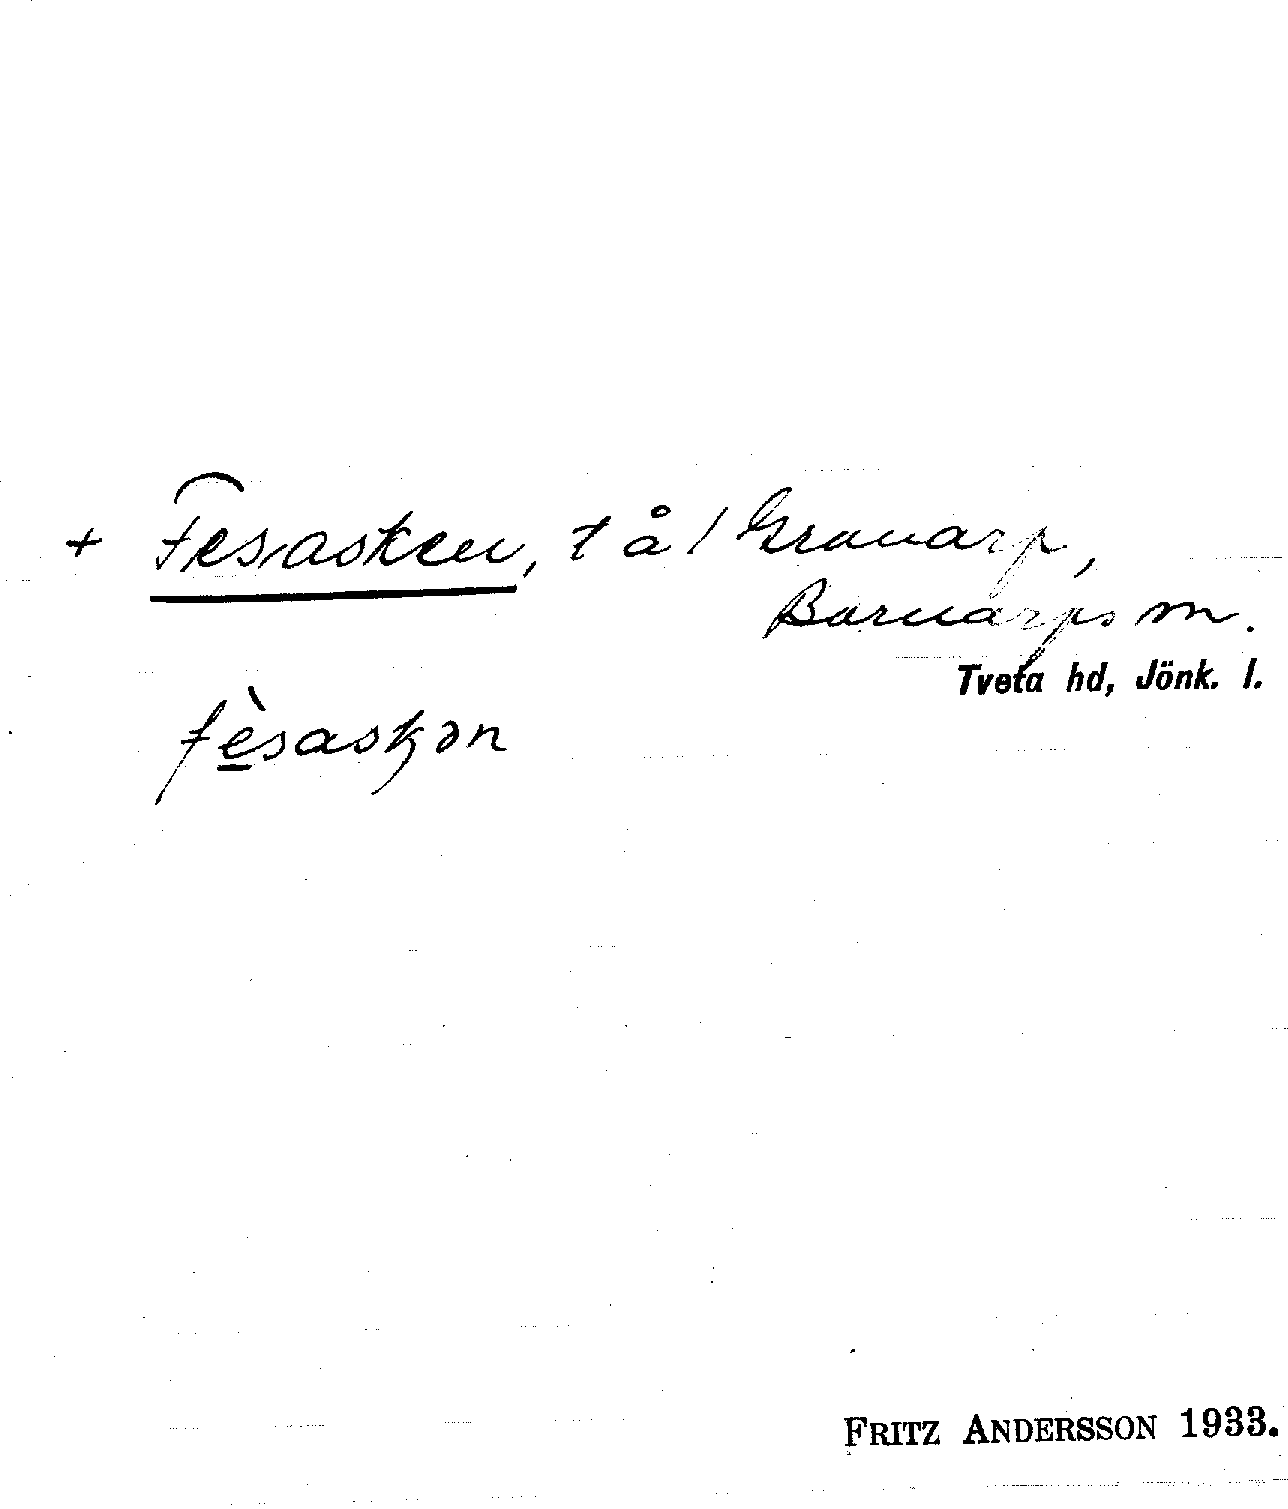 + Fesasken, t å / Granarp,
Barnarps sn.
Tveta hd, Jönk. l.
fèsaskən
FRITZ ANDERSSON 1933.